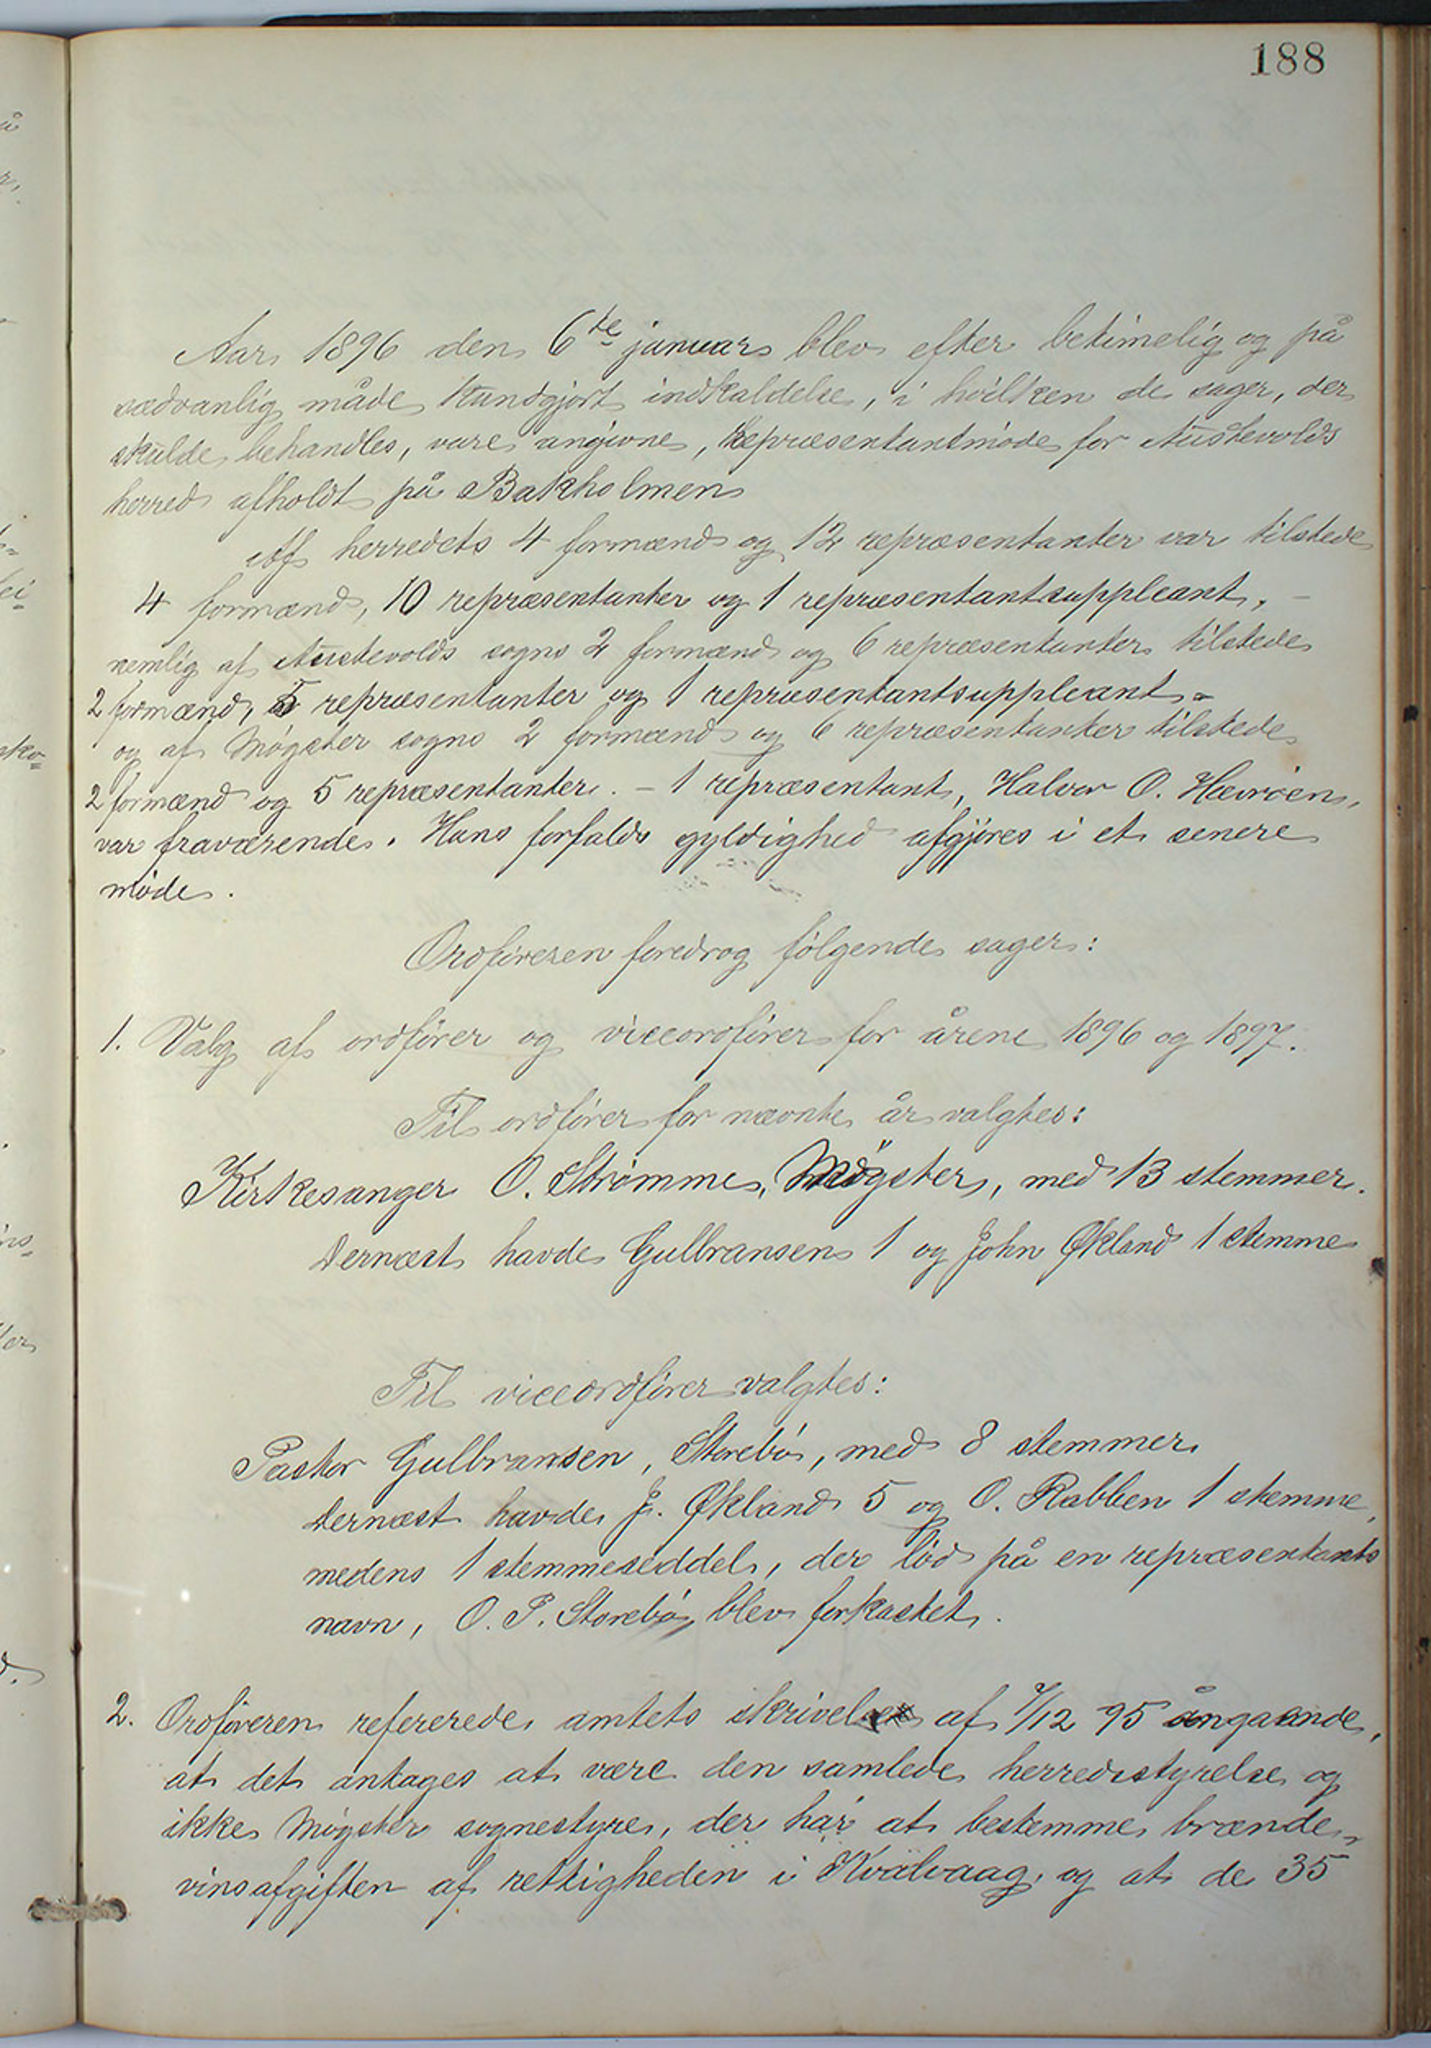 188
Aar 1896 den 6te januar blev efter betimelig og på
sædvanlig måde kundgjort indkaldelse, i hvilken de sager, der
skulde behandles, vare angivne, repræsentantmøde for Austevolds
herred afholdt på Bakholmen
Af herredets 4 formænd og 12 repræsentanter var tilstede
4 formænd, 10 repræsentanter og 1 repræsentantsuppleant, –
nemlig af Austevolds sogns 2 formænd og 6 repræsentanter tilstede
2 formænd, 5 repræsentanter og 1 repræsentantsuppleant –
og af Møgster sogns 2 formænd og 6 repræsentanter tilstede
2 formænd og 5 repræsentanter. – 1 repræsentant, Halvor O. Hevrøen,
var fraværende. Hans forfalds gyldighed afgjøres i et senere
møde.
Ordføreren foredrog følgende sager:
1. Valg af ordfører og viceordfører for årene 1896 og 1897.
Til ordfører for nævnte år valgtes:
Kirkesanger O. Strømme, Møgster, med 13 stemmer.
Dernæst havde Gulbransen 1 og John Økland 1 stemme
Til viceordfører valgtes:
Pastor Gulbransen, Storebø, med 8 stemmer
Dernæst havde J. Økland 5 og O. Rabben 1 stemme,
medens 1 stemmeseddel, der lød på en repræsentants
navn, O. P. Storebø, blev forkastet.
2. Ordføreren refererede amtets skrivelse af 7/12 95 angaaende,
at det antages at være den samlede herredsstyrelse og
ikke Møgster sognestyre, der har at bestemme brænde-
vinsafgiften af rettigheden i Kvalvaag, og at de 35